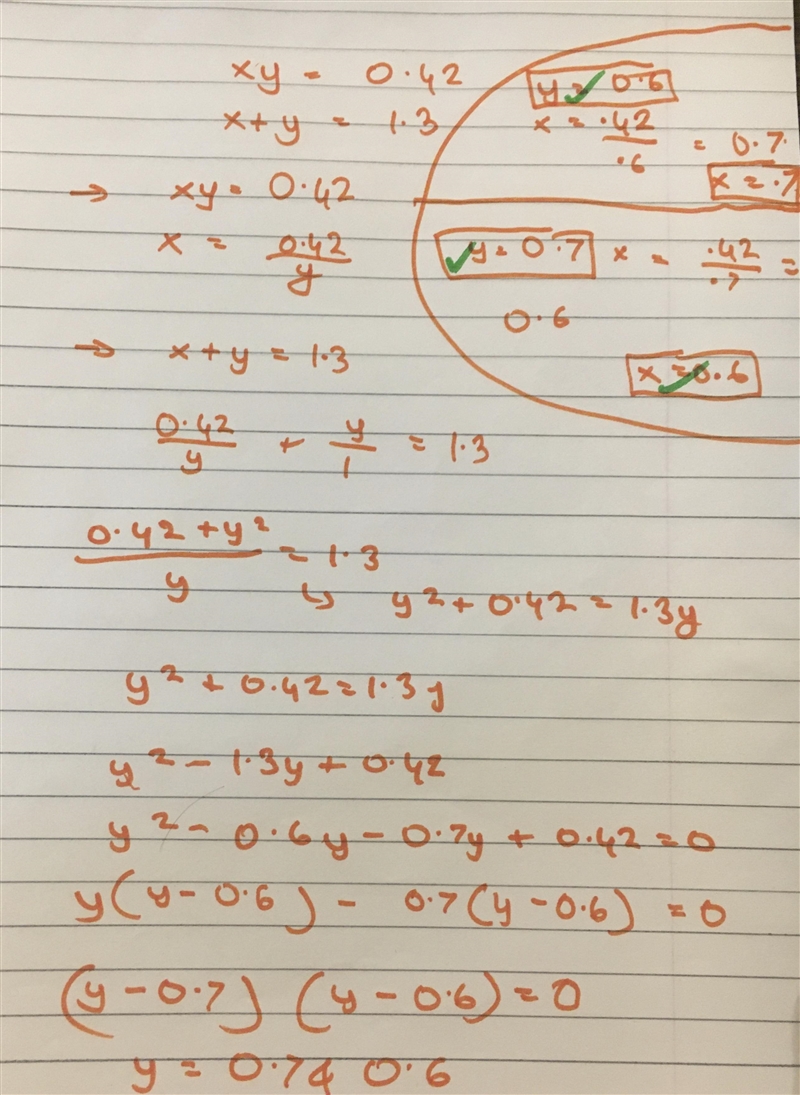 xy = 0.42
x+y = 1.3
→ xy = 0.42
x = 0.42/y
→ x+y = 1.3
0.42/y + y/1 = 1.3
(0.42+y²)/y = 1.3
↳ y²+0.42=1.3y
y²+0.42=1.3y
y²-1.3y+0.42
y²-0.6y-0.7y+0.42=0
y(y-0.6)-0.7(y-0.6)=0
(y-0.7)(y-0.6)=0
y = 0.7 & 0.6
y = 0.6
x = .42/.6 = 0.7
x = .7
y = 0.7 x = .42/.7 =
0.6
x = 0.6